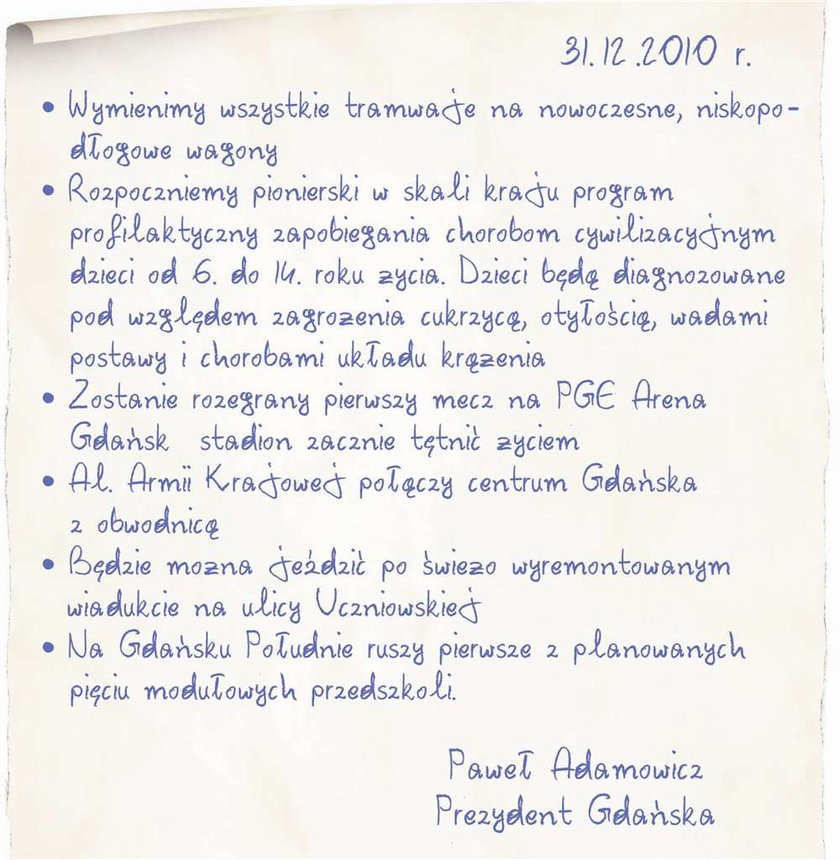 31.12.2010 r.
• Wymienimy wszystkie tramwaje na nowoczesne, niskopo-
dłogowe wagony
• Rozpoczniemy pionierski w skali kraju program
profilaktyczny zapobiegania chorobom cywilizacyjnym
dzieci od 6. do 14. roku życia. Dzieci będą diagnozowane
pod względem zagrożenia cukrzycą, otyłością, wadami
postawy i chorobami układu krążenia
• Zostanie rozegrany pierwszy mecz na PGE Arena
Gdańsk stadion zacznie tętnić życiem
• Al. Armii Krajowej połączy centrum Gdańska
z obwodnicą
• Będzie można jeździć po świeżo wyremontowanym
wiadukcie na ulicy Uczniowskiej
• Na Gdańsku Południe ruszy pierwsze z planowanych
pięciu modułowych przedszkoli.
Paweł Adamowicz
Prezydent Gdańska